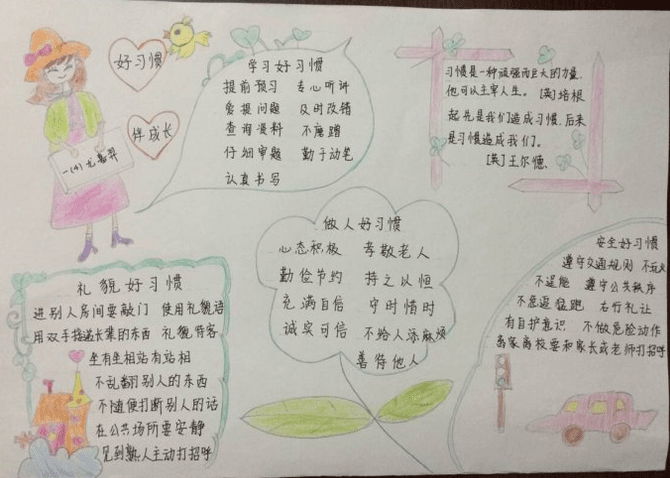 好习惯
伴成长
学习好习惯
提前预习 专心听讲
爱提问题 及时改错
查询资料 不磨蹭
仔细审题 勤于动笔
认真书写
习惯是一种顽强而巨大的力量,
他可以主宰人生。 [英]培根
起先是我们造成习惯,后来
是习惯造成我们。
[英]王尔德
做人好习惯
心态积极 孝敬老人
勤俭节约 持之以恒
充满自信 守时惜时
诚实可信 不给人添麻烦
善待他人
礼貌好习惯
进别人房间要敲门 使用礼貌语
用双手接递长辈的东西 礼貌待客
坐有坐相站有站相
不乱翻别人的东西
不随便打断别人的话
在公共场所要安静
见到熟人主动打招呼
安全好习惯
遵守交通规则 不玩火
不逞能 遵守公共秩序
不急追猛跑 右行礼让
有自护意识 不做危险动作
离家离校要和家长或老师打招呼